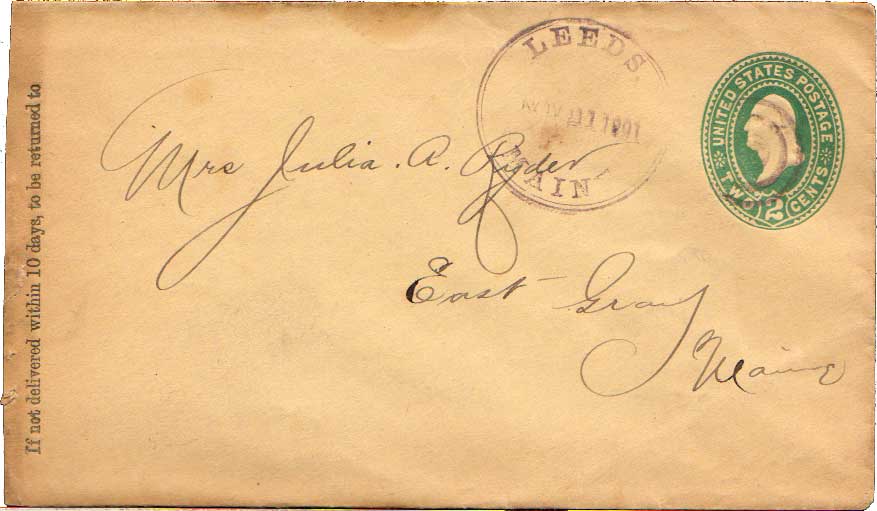 LEEDS,
NOV 11 1891
MAINE
UNITED STATES POSTAGE
TWO 2 CENTS
Mrs Julia. A. Ryder
East Gray
Maine
If not delivered within 10 days, to be returned to